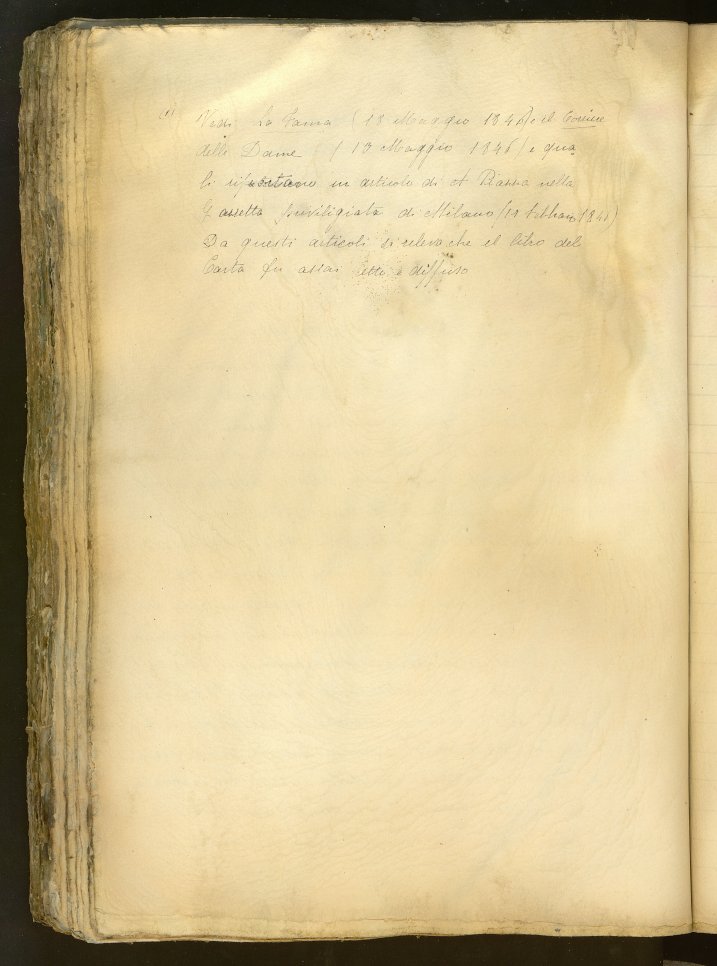 (1) Vedi La Fama (18 Maggio 1846) e il Corriere
delle Dame (13 Maggio 1846) i qua
li riportano un articolo di A Piazza nella
Gazzetta privilegiata di Milano (11 febbraio 1846)
Da questi articoli si rileva che il libro del
Carta fu assai letto e diffuso